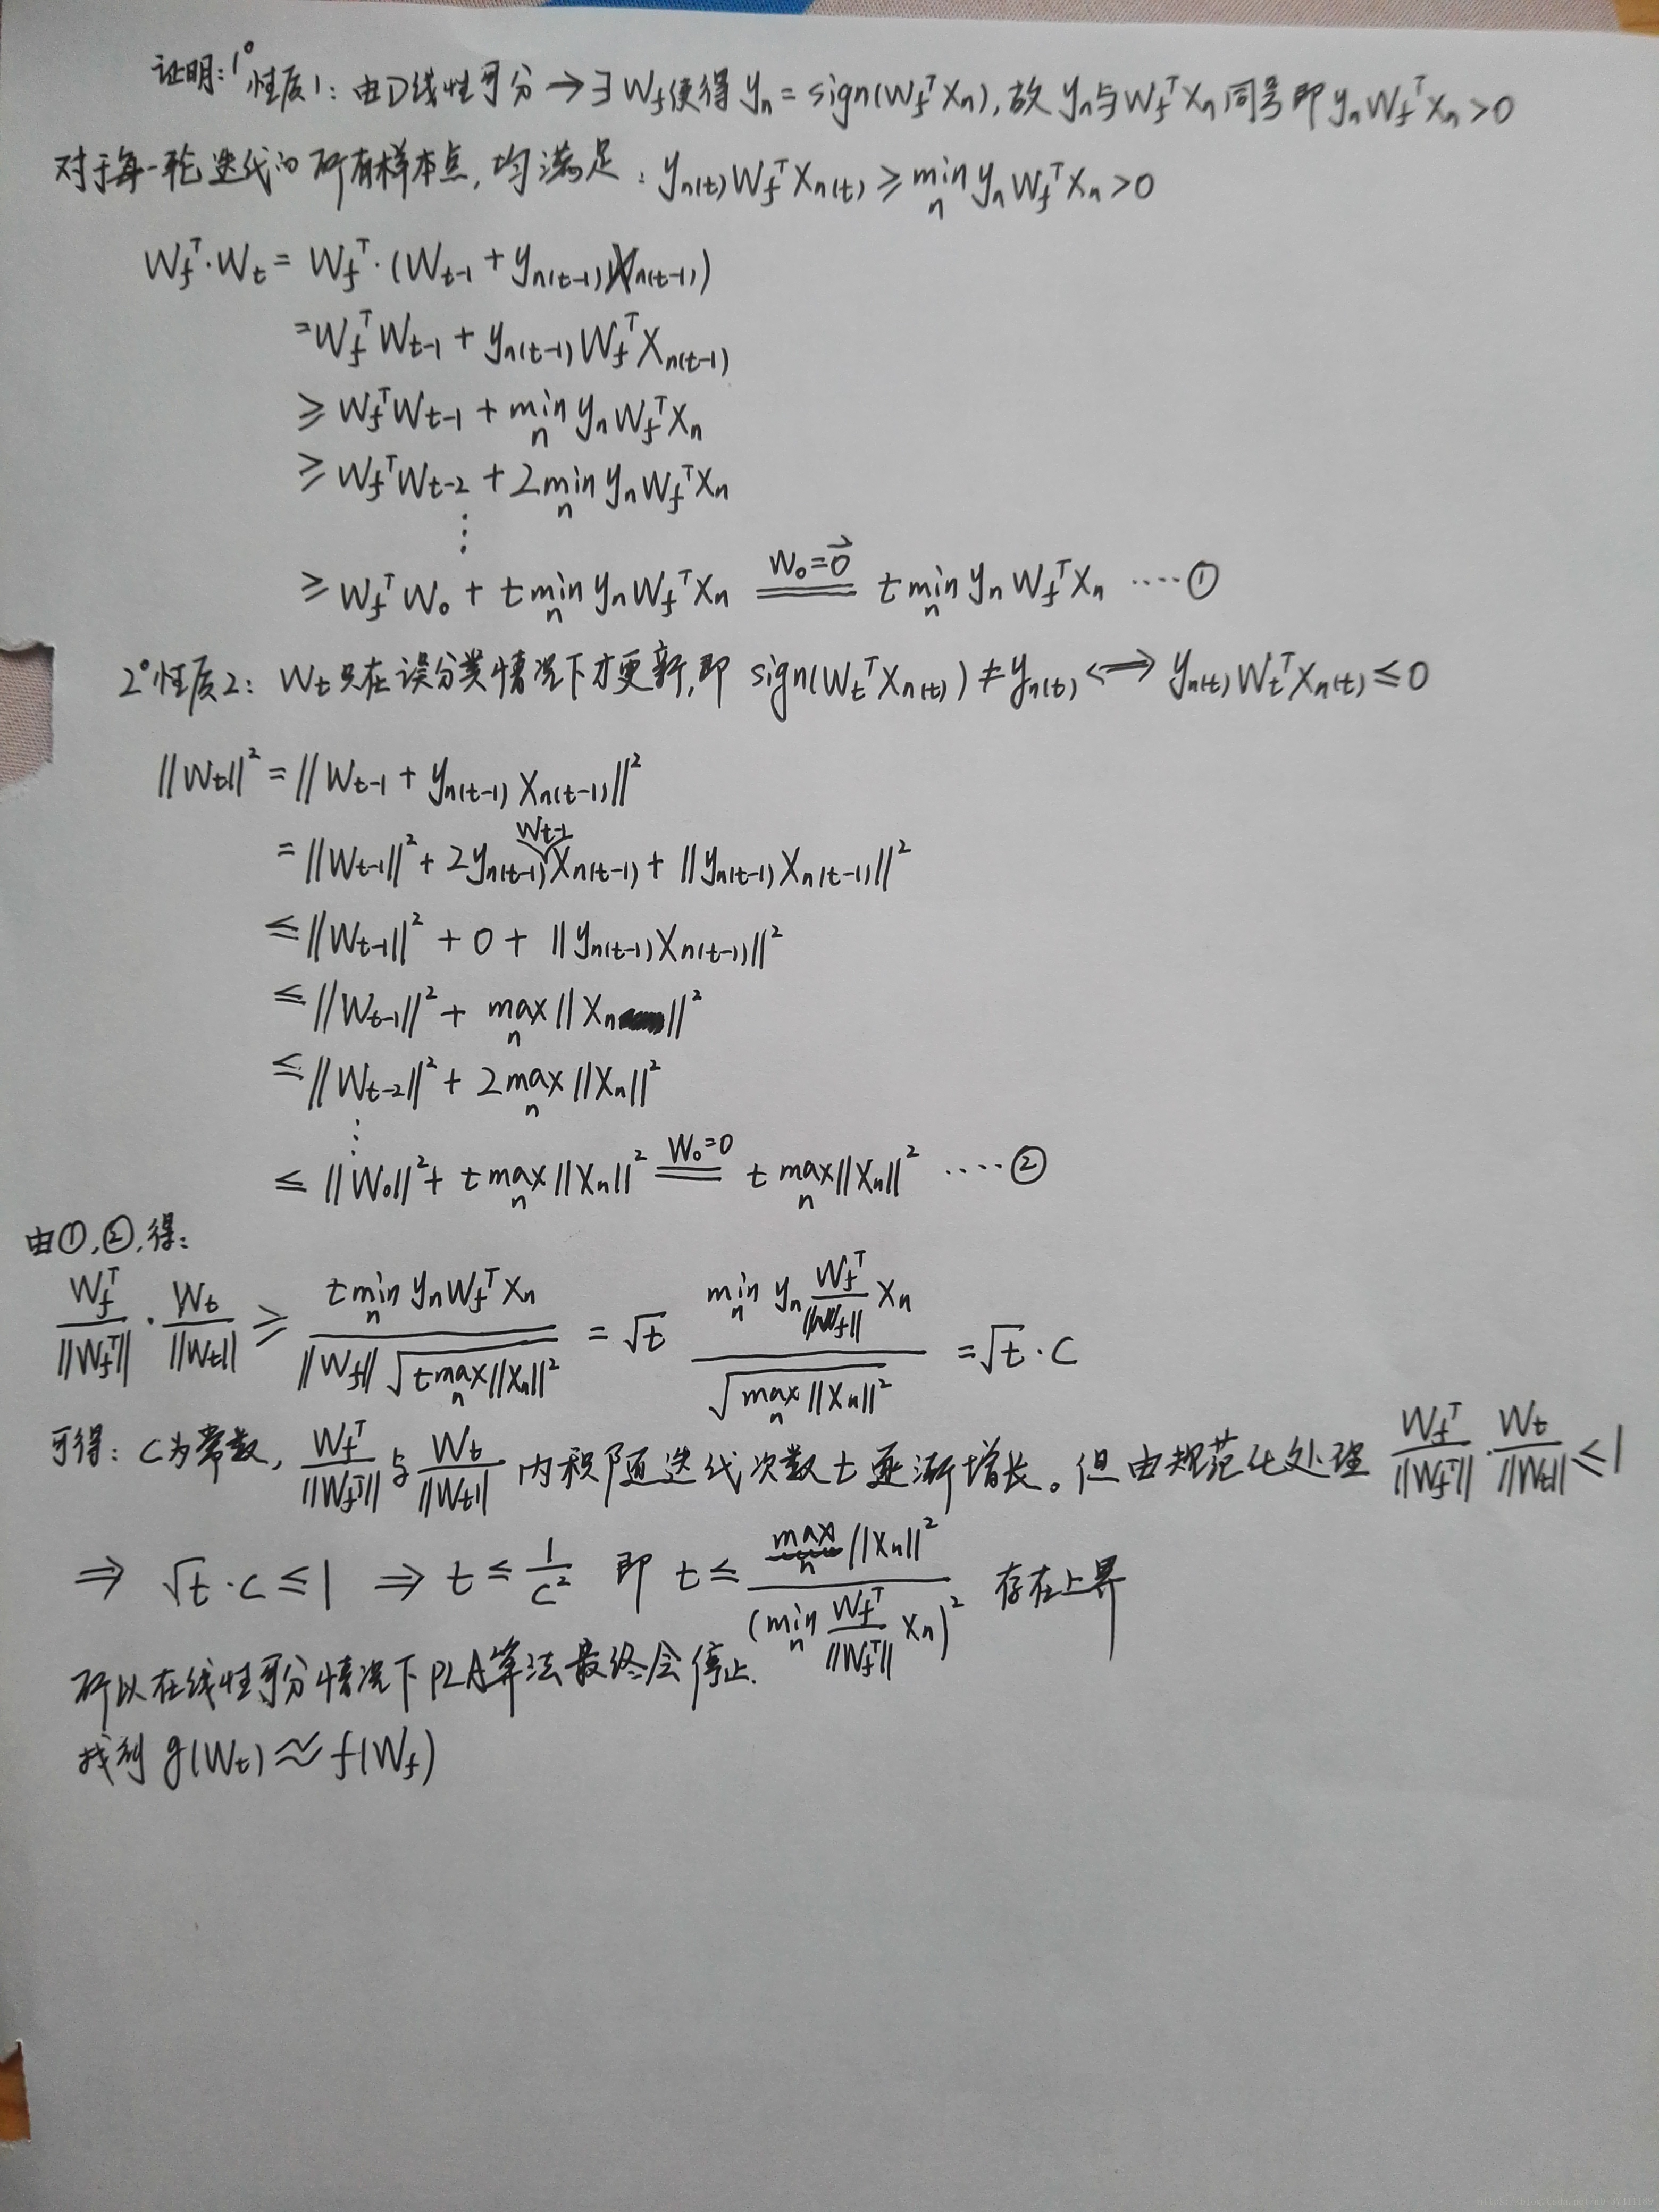 证明:1° 性质1: 由D线性可分 → ∃ W_f使得 y_n = sign(W_f^T X_n), 故 y_n与W_f^T X_n 同号 即 y_n W_f^T X_n > 0
对于每一轮迭代的所有样本点, 均满足: y_{n(t)} W_f^T X_{n(t)} ≥ min_n y_n W_f^T X_n > 0
W_f^T · W_t = W_f^T · (W_{t-1} + y_{n(t-1)} X_{n(t-1)})
= W_f^T W_{t-1} + y_{n(t-1)} W_f^T X_{n(t-1)}
≥ W_f^T W_{t-1} + min_n y_n W_f^T X_n
≥ W_f^T W_{t-2} + 2 min_n y_n W_f^T X_n
⋮
≥ W_f^T W_0 + t min_n y_n W_f^T X_n \xlongequal{W_0=\vec{0}} t min_n y_n W_f^T X_n ····· ①
2° 性质2: W_t只在误分类情况下才更新, 即 sign(W_t^T X_{n(t)}) ≠ y_{n(t)} ⟺ y_{n(t)} W_t^T X_{n(t)} ≤ 0
||W_t||² = ||W_{t-1} + y_{n(t-1)} X_{n(t-1)}||²
= ||W_{t-1}||² + 2 y_{n(t-1)} W_{t-1} X_{n(t-1)} + ||y_{n(t-1)} X_{n(t-1)}||²
≤ ||W_{t-1}||² + 0 + ||y_{n(t-1)} X_{n(t-1)}||²
≤ ||W_{t-1}||² + max_n ||X_n||²
≤ ||W_{t-2}||² + 2 max_n ||X_n||²
⋮
≤ ||W_0||² + t max_n ||X_n||² \xlongequal{W_0=0} t max_n ||X_n||² ····· ②
由①,②,得:
\frac{W_f^T}{||W_f^T||} · \frac{W_t}{||W_t||} ≥ \frac{t min_n y_n W_f^T X_n}{||W_f|| \sqrt{t max_n ||X_n||²}} = √t \frac{min_n y_n \frac{W_f^T}{||W_f||} X_n}{\sqrt{max_n ||X_n||²}} = √t · C
可得: C为常数, \frac{W_f^T}{||W_f^T||} 与 \frac{W_t}{||W_t||} 内积随迭代次数 t 逐渐增长。但由规范化处理 \frac{W_f^T}{||W_f^T||} · \frac{W_t}{||W_t||} ≤ 1
⇒ √t · C ≤ 1 ⇒ t ≤ \frac{1}{C²} 即 t ≤ \frac{max_n ||X_n||²}{(min_n \frac{W_f^T}{||W_f^T||} X_n)²} 存在上界
所以在线性可分情况下PLA算法最终会停止.
找到 g(W_t) ≈ f(W_f)